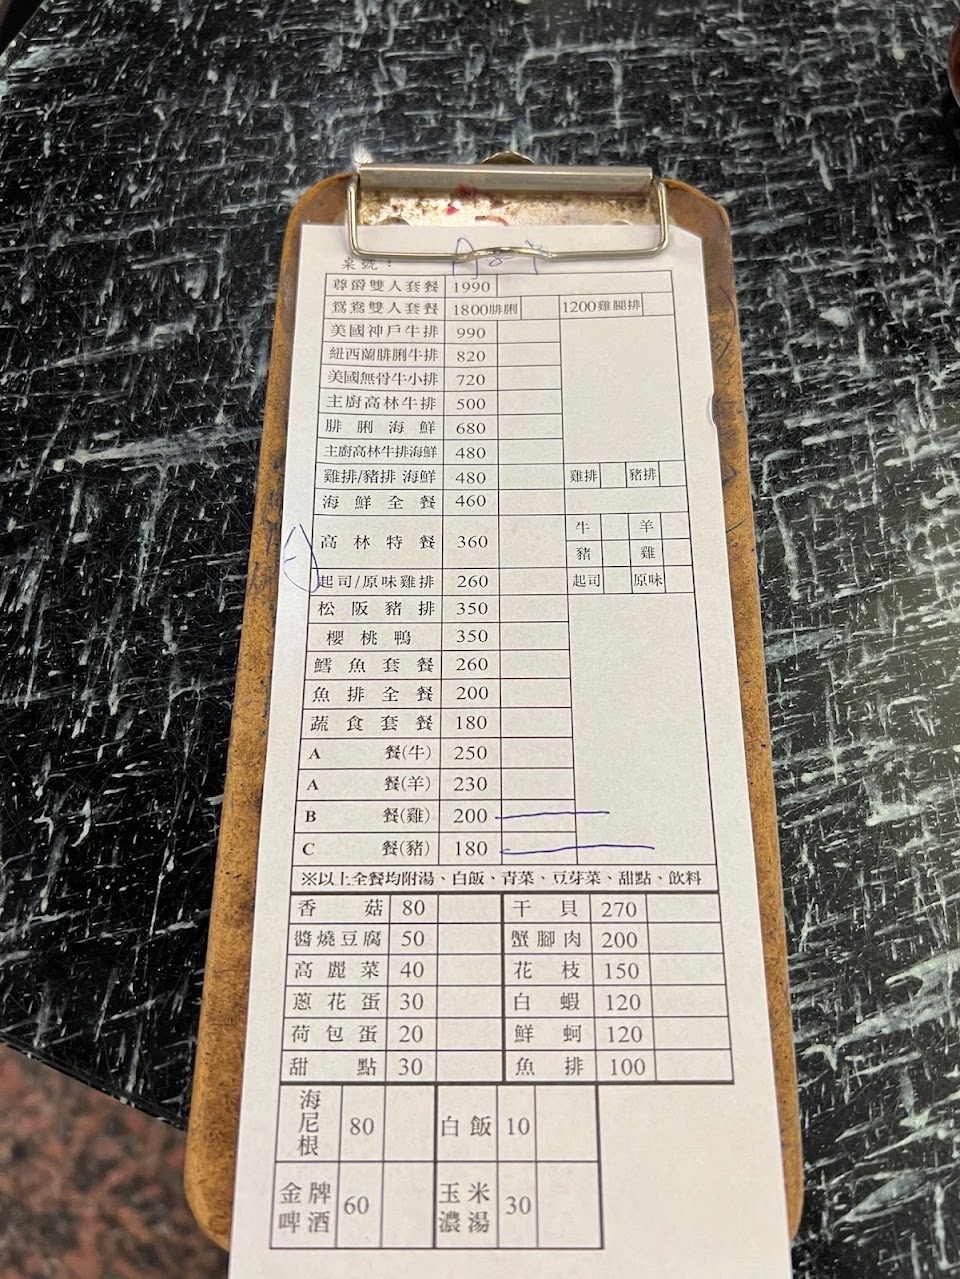 桌號：
尊爵雙人套餐 1990
鴛鴦雙人套餐 1800腓脷 1200雞腿排
美國神戶牛排 990
紐西蘭腓脷牛排 820
美國無骨牛小排 720
主廚高林牛排 500
腓脷海鮮 680
主廚高林牛排海鮮 480
雞排/豬排 海鮮 480 雞排 豬排
海鮮全餐 460
高林特餐 360 牛 羊
豬 雞
起司/原味雞排 260 起司 原味
松阪豬排 350
櫻桃鴨 350
鱈魚套餐 260
魚排全餐 200
蔬食套餐 180
A 餐(牛) 250
A 餐(羊) 230
B 餐(雞) 200
C 餐(豬) 180
※以上全餐均附湯、白飯、青菜、豆芽菜、甜點、飲料
香菇 80 干貝 270
醬燒豆腐 50 蟹腳肉 200
高麗菜 40 花枝 150
蔥花蛋 30 白蝦 120
荷包蛋 20 鮮蚵 120
甜點 30 魚排 100
海尼根 80 白飯 10
金牌啤酒 60 玉米濃湯 30